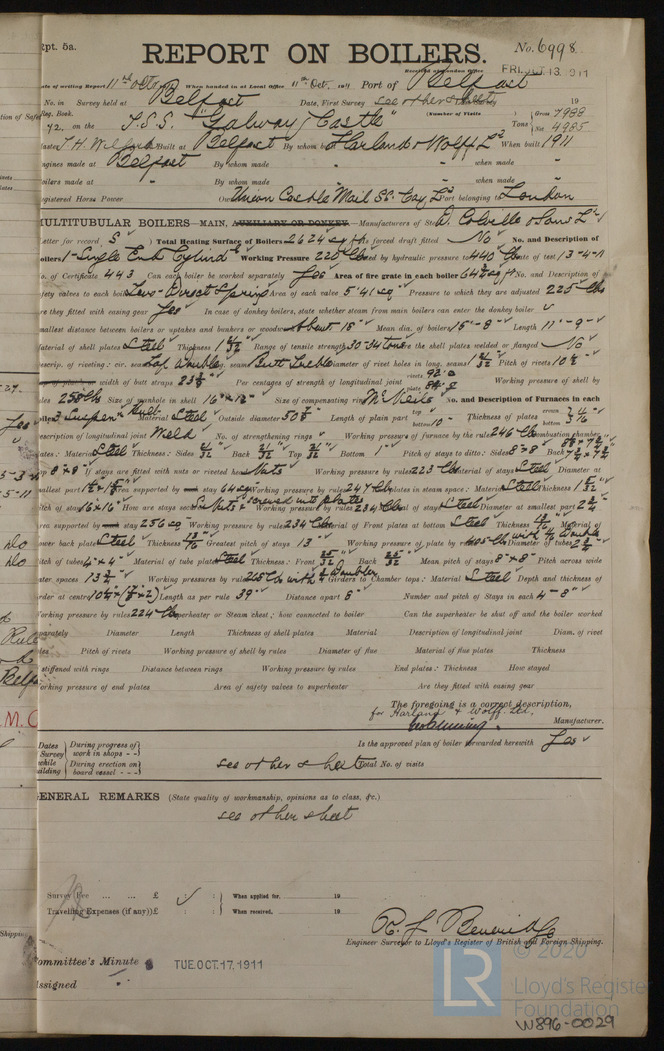 Rpt. 5a.
REPORT ON BOILERS.
No. 6998
Received at London Office
FRI. OCT 13. 1911
Date of writing Report 11th Oct When handed in at Local Office 11th Oct. 1911 Port of Belfast
No. in Survey held at Belfast Date, First Survey see other sheet 19
Reg. Book. (Number of Visits
72. on the T.S.S. "Galway Castle" Tons Gross 7988 Net 4985
Master T. H. Wilford Built at Belfast By whom built Harland & Wolff Ld When built 1911
Engines made at Belfast By whom made " when made "
Boilers made at " By whom made " when made "
Registered Horse Power Owners Union Castle Mail SS. Coy Ld Port belonging to London
MULTITUBULAR BOILERS MAIN, AUXILIARY OR DONKEY. Manufacturers of Steel D. Colville & Sons Ld
Letter for record S ) Total Heating Surface of Boilers 2624 sq ft Is forced draft fitted No No. and Description of
Boilers 1-Single End Cylindl Working Pressure 220 lbs Tested by hydraulic pressure to 440 lbs Date of test 13-4-11
No. of Certificate 443 Can each boiler be worked separately Yes Area of fire grate in each boiler 64½ sq ft No. and Description of
safety valves to each boiler Two-Direct Spring Area of each valve 5.41 sq" Pressure to which they are adjusted 225 lbs
Are they fitted with easing gear Yes In case of donkey boilers, state whether steam from main boilers can enter the donkey boiler
Smallest distance between boilers or uptakes and bunkers or woodwork About 18" Mean dia. of boilers 15'-8" Length 11'-9"
Material of shell plates Steel Thickness Range of tensile strength 30-34 tons Are the shell plates welded or flanged No
Descrip. of riveting: cir. seams Lap Double long. seams Butt Treble Diameter of rivet holes in long. seams Pitch of rivets
width of butt straps Per centages of strength of longitudinal joint rivets plate Working pressure of shell by
rules 258 lbs Size of manhole in shell 16" x 12" Size of compensating ring McNeils No. and Description of Furnaces in each
boiler 3 Suspen Bulb Material Steel Outside diameter Length of plain part top bottom Thickness of plates crown bottom
Description of longitudinal joint Weld No. of strengthening rings Working pressure of furnace by the rules 246 lbs Combustion chamber
plates: Material Steel Thickness: Sides Back Top Bottom 1" Pitch of stays to ditto: Sides 8" x 8" Back
Top 8" x 8" If stays are fitted with nuts or riveted heads Nuts Working pressure by rules 223 lbs Material of stays Steel Diameter at
smallest part Area supported by each stay 64 sq" Working pressure by rules 247 lbs End plates in steam space: Material Steel Thickness
Pitch of stays 16" x 16" How are stays secured Nuts & screwed into plates Working pressure by rules 234 lbs Material of stays Steel Diameter at smallest part
Area supported by each stay 256 sq" Working pressure by rules 234 lbs Material of Front plates at bottom Steel Thickness Material of
Lower back plate Steel Thickness Greatest pitch of stays 13" Working pressure of plate by rules 405 lbs with Doubler Diameter of tubes
Pitch of tubes 4" x 4" Material of tube plates Steel Thickness: Front Back Mean pitch of stays 8" x 8" Pitch across wide
water spaces Working pressures by rules 265 lbs with Doubler Girders to Chamber tops: Material Steel Depth and thickness of
girder at centre Length as per rule 39" Distance apart 8" Number and pitch of Stays in each 4-8"
Working pressure by rules 224 lbs Superheater or Steam chest; how connected to boiler Can the superheater be shut off and the boiler worked
separately Diameter Length Thickness of shell plates Material Description of longitudinal joint Diam. of rivet
holes Pitch of rivets Working pressure of shell by rules Diameter of flue Material of flue plates Thickness
If stiffened with rings Distance between rings Working pressure by rules End plates: Thickness How stayed
Working pressure of end plates Area of safety valves to superheater Are they fitted with easing gear
The foregoing is a correct description,
for Harland & Wolff Ltd.
Manufacturer.
Dates of Survey while building
During progress of work in shops - - Is the approved plan of boiler forwarded herewith Yes
During erection on board vessel - - - see other sheet Total No. of visits
GENERAL REMARKS (State quality of workmanship, opinions as to class, &c.)
see other sheet
Survey Fee ... ... £ : : When applied for, 19
Travelling Expenses (if any) £ : : When received, 19
R. J. Beveridge
Engineer Surveyor to Lloyd's Register of British and Foreign Shipping.
Committee's Minute TUE. OCT. 17. 1911
Assigned
© 2020
LR
Lloyd's Register
Foundation
W896-0029